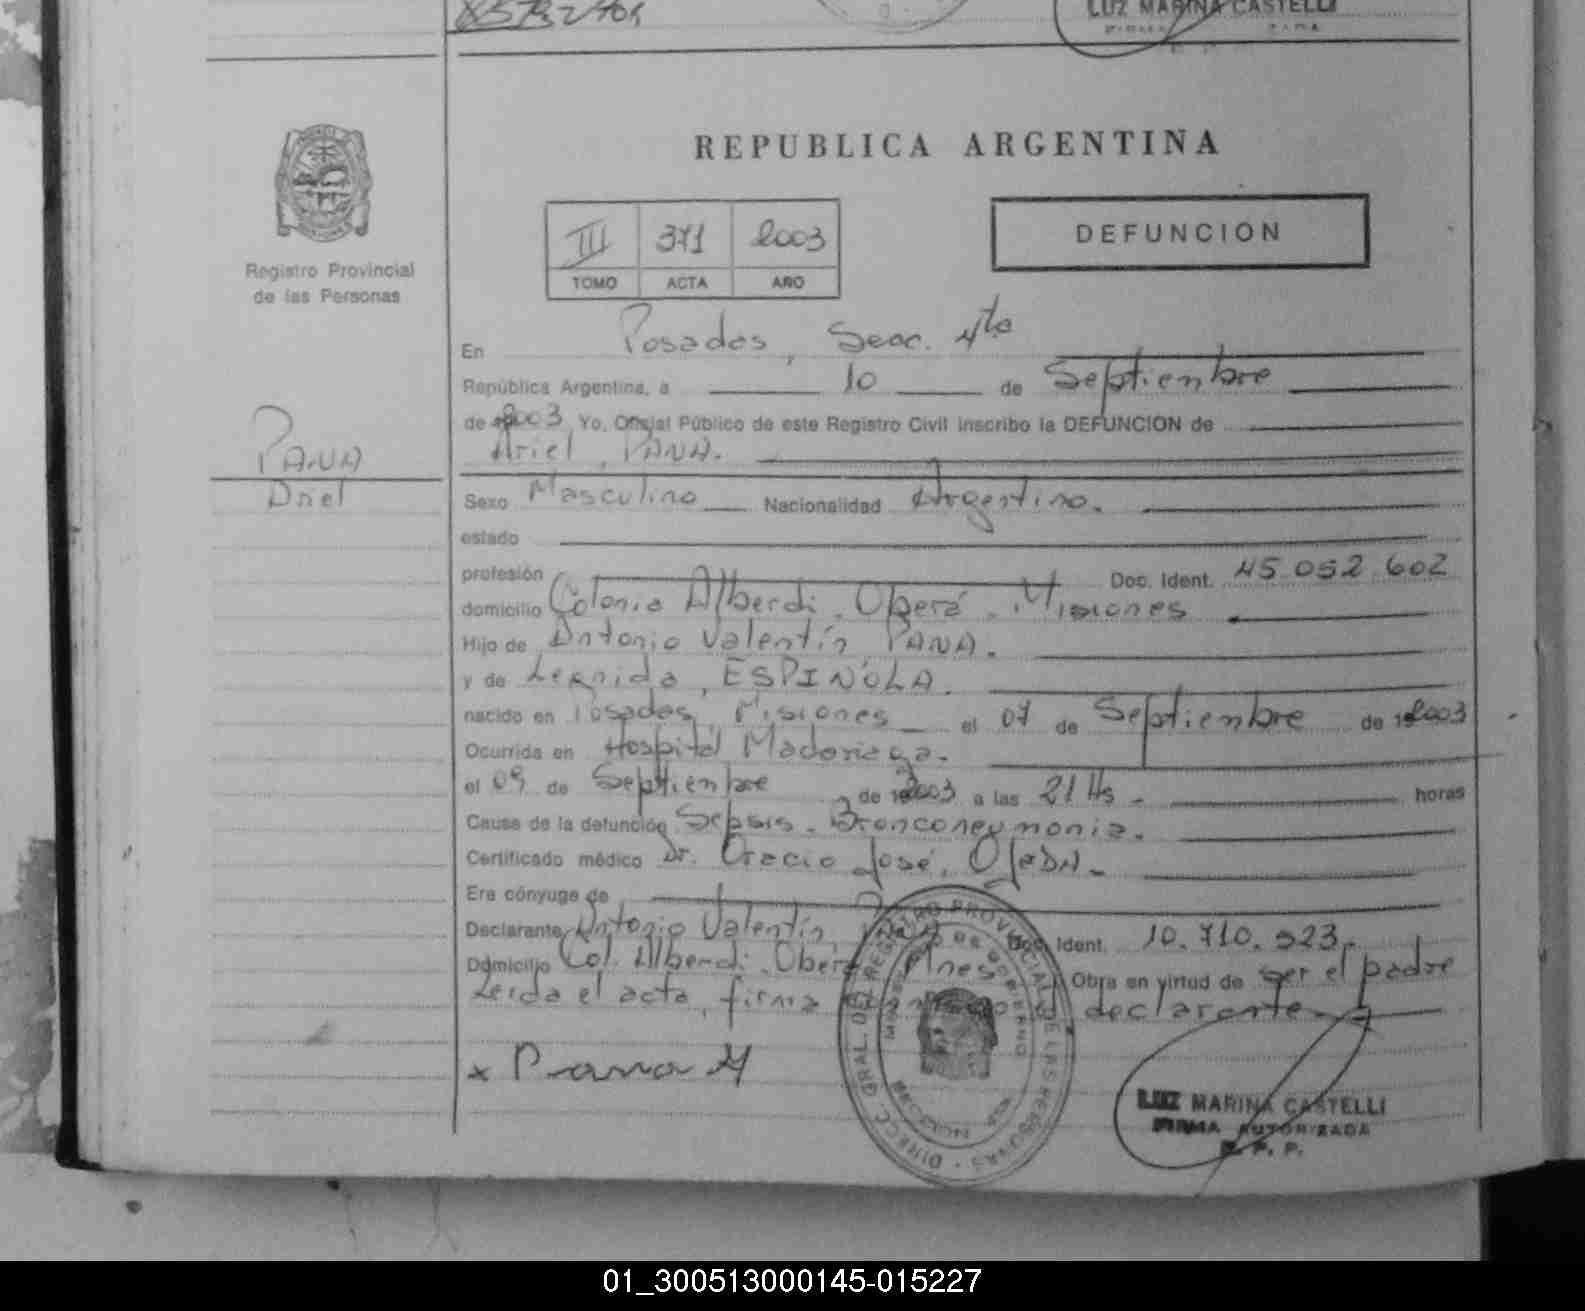 85732401
LUZ MARINA CASTELLI
REPUBLICA ARGENTINA
III 371 2003
TOMO ACTA AÑO
DEFUNCION
Registro Provincial
de las Personas
En Posadas, Secc. 4ta
República Argentina, a 10 de Septiembre
de 2003 Yo, Oficial Público de este Registro Civil inscribo la DEFUNCION de
Ariel, PANA.
PANA
Ariel
Sexo Masculino Nacionalidad Argentino.
estado
profesión Doc. Ident. 45.052.602
domicilio Colonia Alberdi. Oberá. Misiones
Hijo de Antonio Valentín PANA.
y de Leonida, ESPINOLA.
nacido en Posadas, Misiones el 07 de Septiembre de 2003
Ocurrida en Hospital Madariaga.
el 09 de Septiembre de 2003 a las 21 Hs. horas
Causa de la defunción Sepsis. Bronconeumonia.
Certificado médico Dr. Oracio José, OJEDA.
Era cónyuge de
Declarante Antonio Valentín, Doc. Ident. 10.710.523.
Domicilio Col. Alberdi. Oberá Mnes Obra en virtud de ser el padre
Leida el acta, firma declarante
x Pana A
DIRECC. GRAL. DEL REGISTRO PROVINCIAL DE LAS PERSONAS
LUZ MARINA CASTELLI
FIRMA AUTORIZADA
R. P. P.
01_300513000145-015227